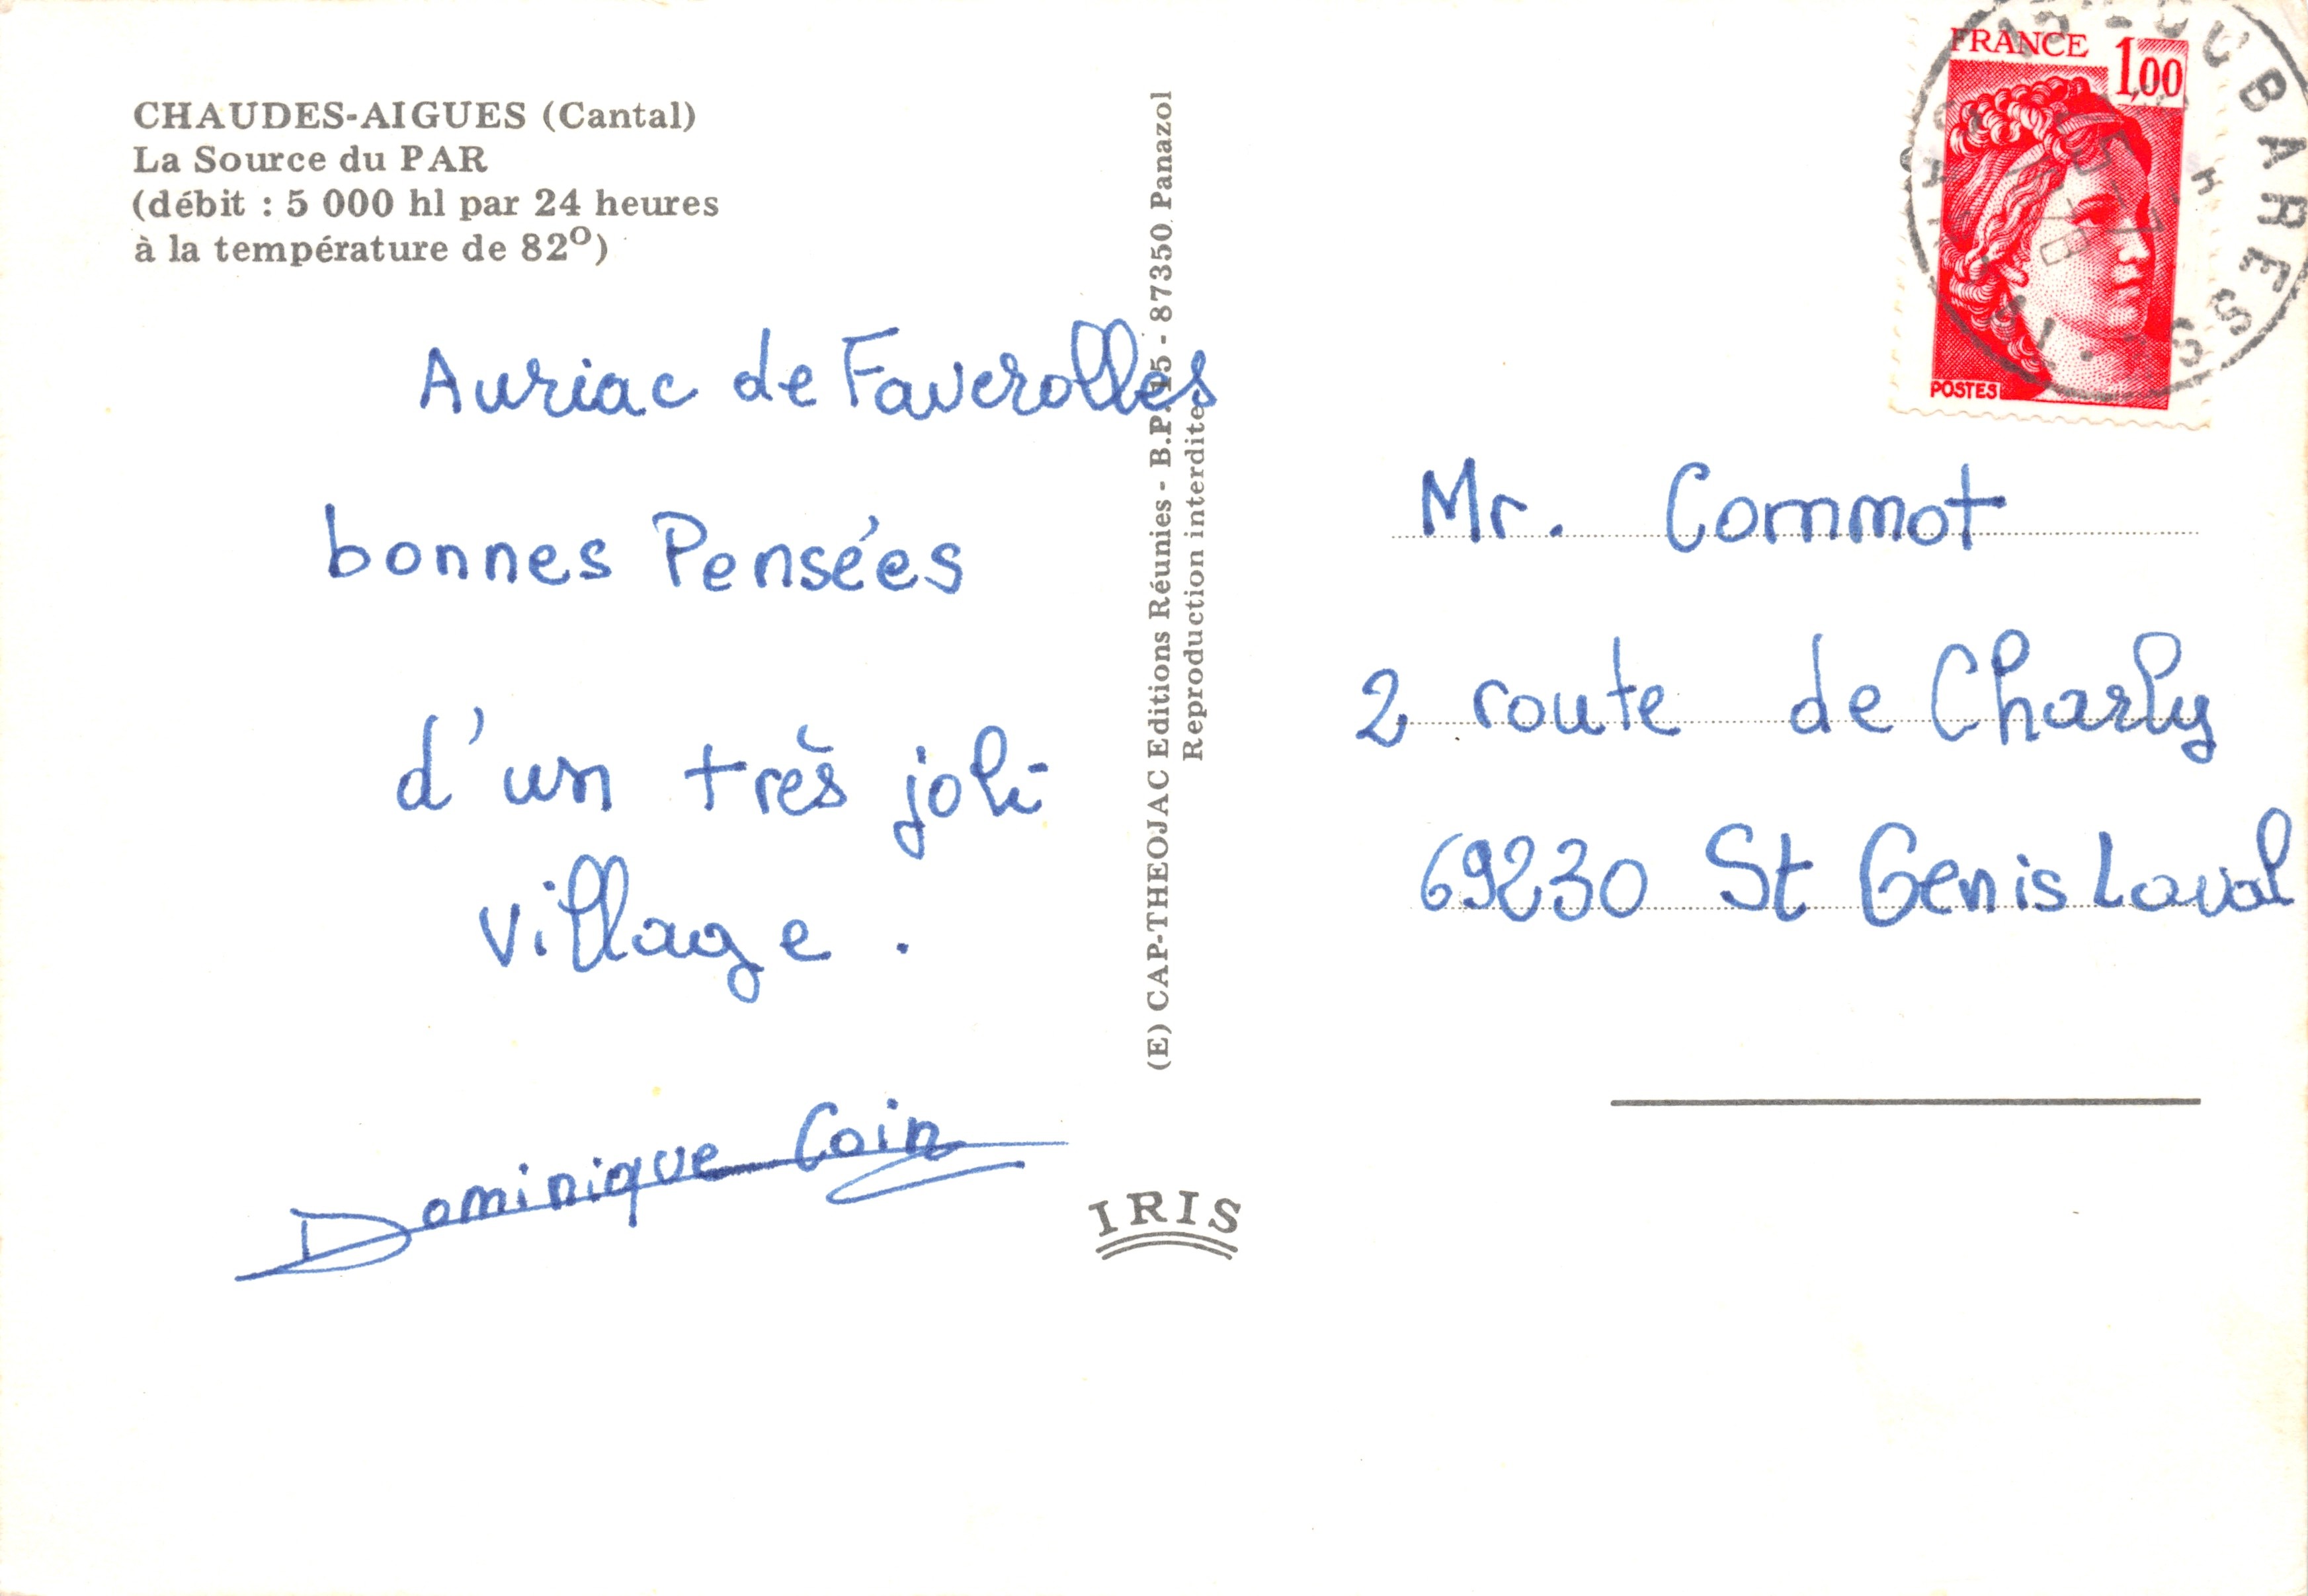 CHAUDES-AIGUES (Cantal)
La Source du PAR
(débit : 5 000 hl par 24 heures
à la température de 82º)
Auriac de Faverolles
bonnes Pensées
d'un très joli
village.
Dominique Coin
(E) CAP-THEOJAC Editions Réunies - B.P. 15 - 87350 Panazol
Reproduction interdite.
IRIS
FRANCE 1,00
POSTES
Mr. Commot
2 route de Charly
69230 St Genis Laval